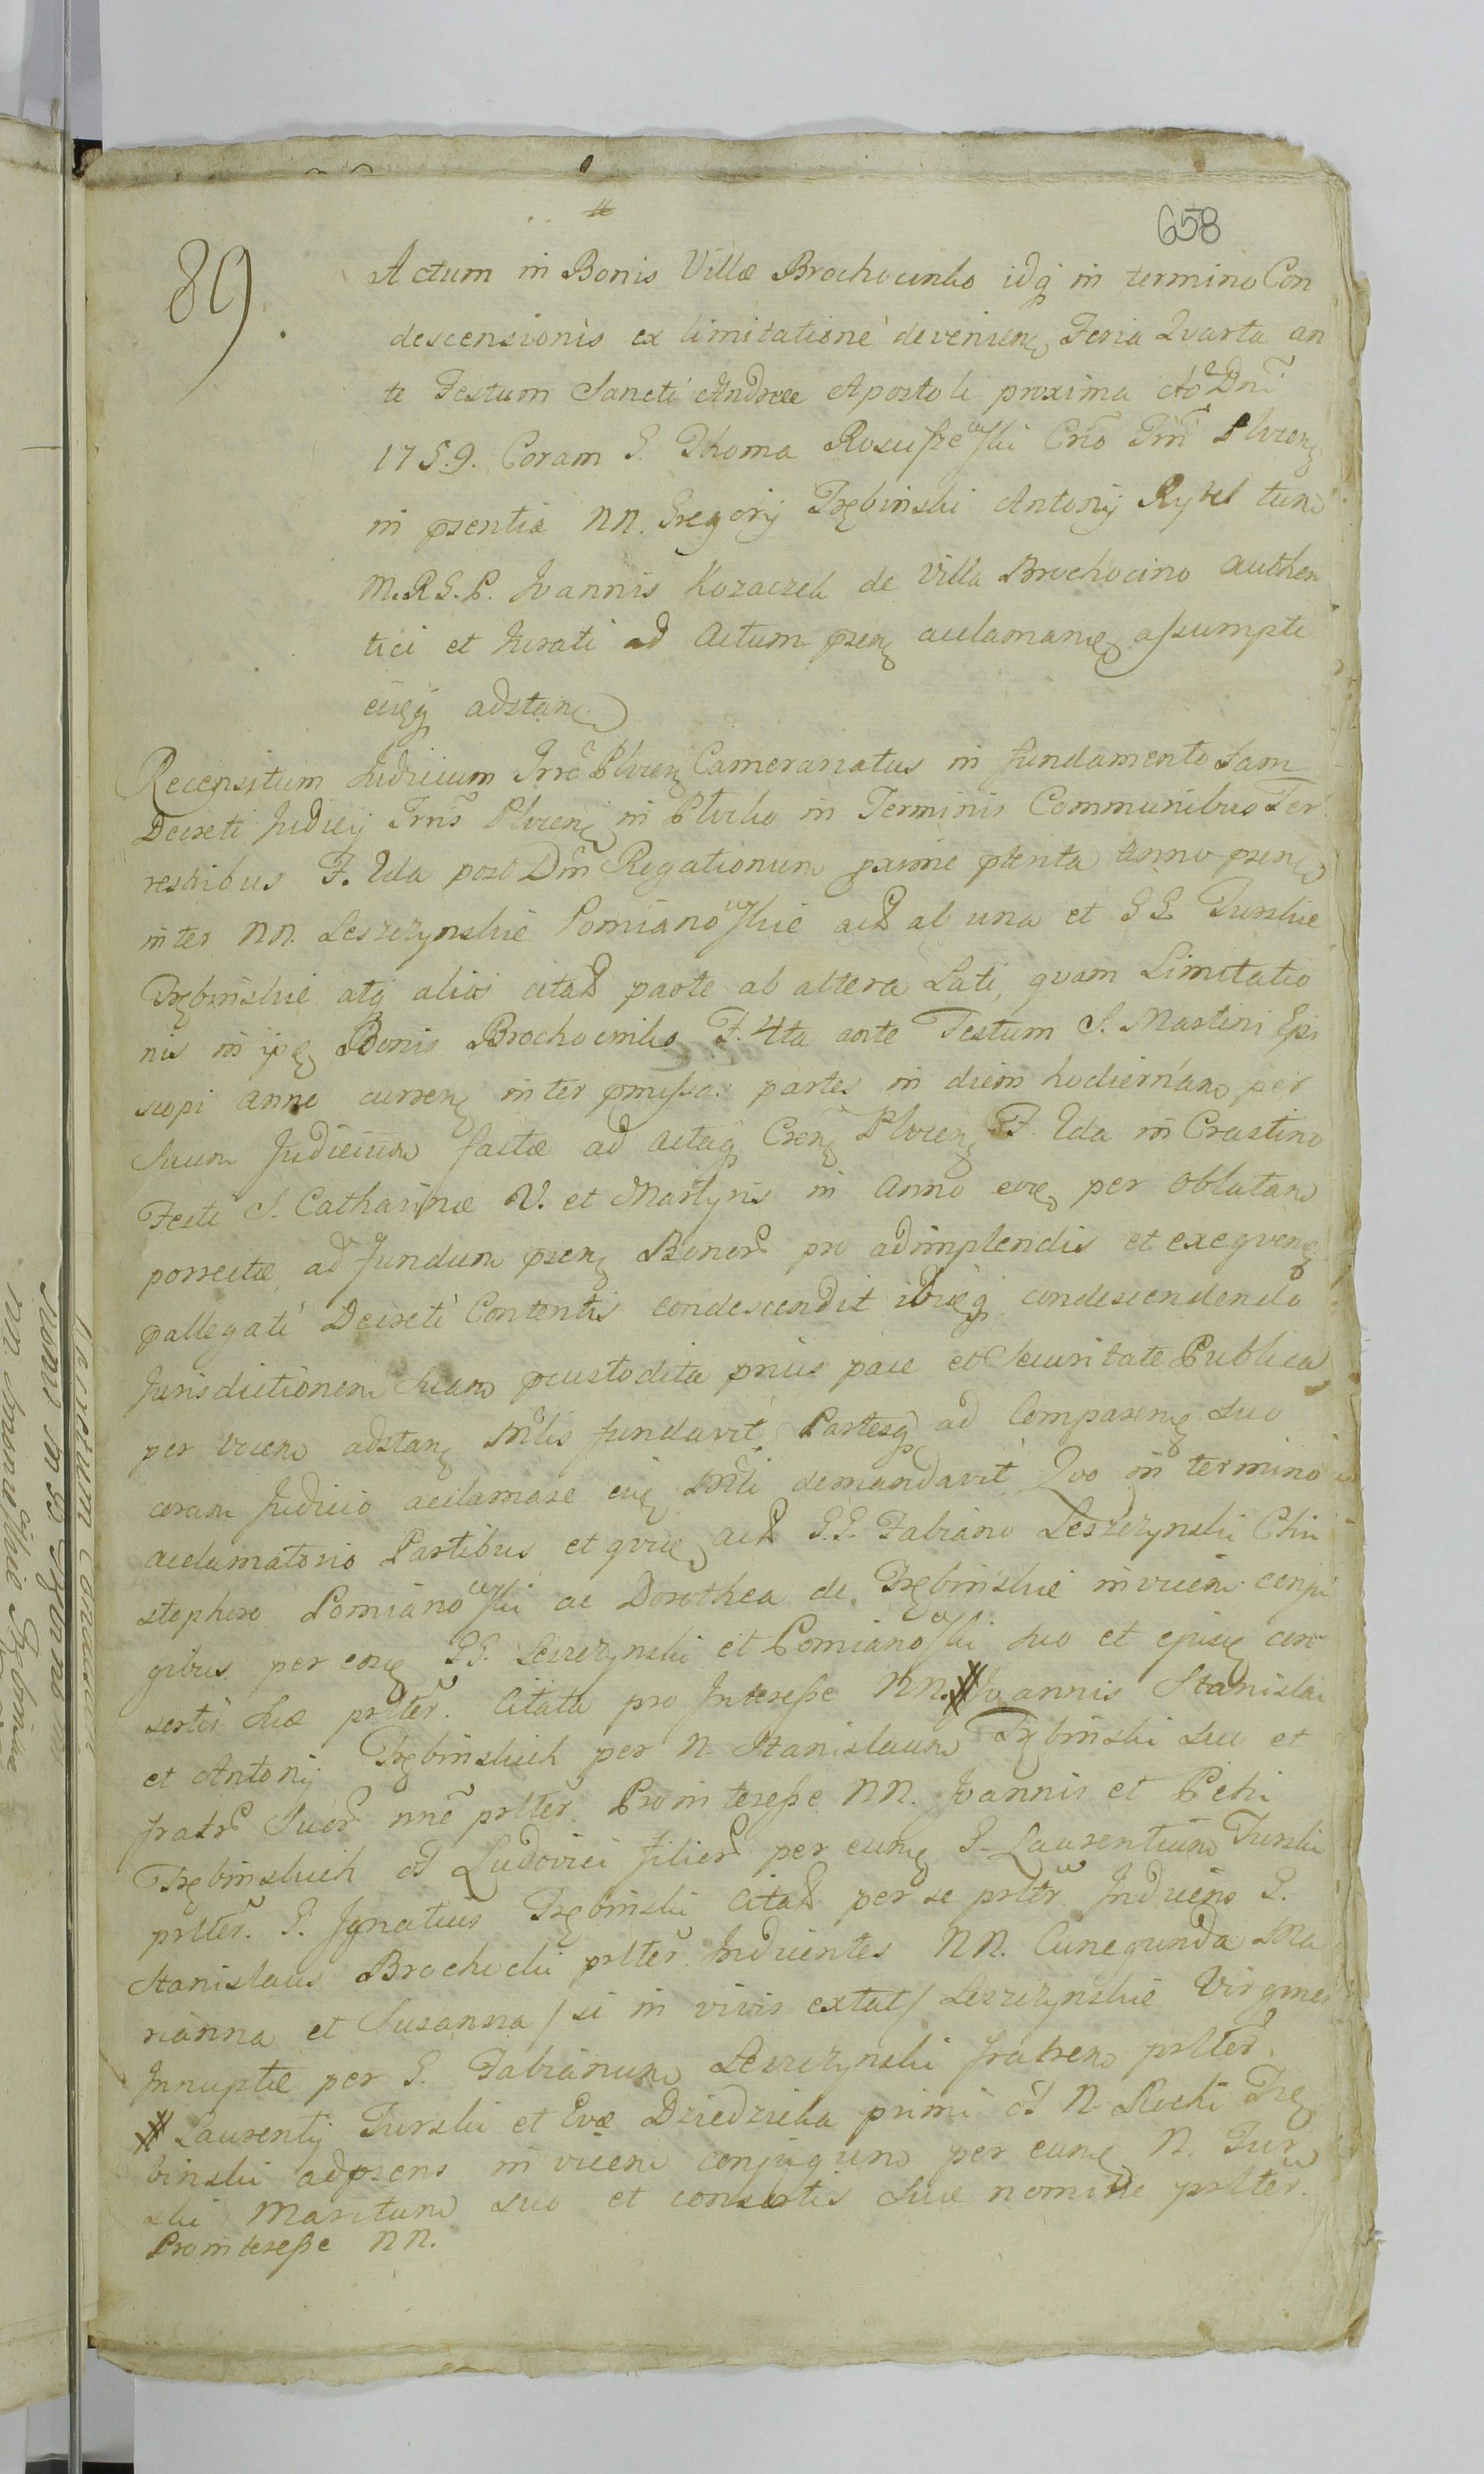 658
89.
Actum in Bonis Villæ Brochocinko idq in termino Con
descensionis ex limitatione devenien Feria Quarta an
te Festum Sancti Andreæ Apostoli proxima Ao Dni
1759. Coram G. Thoma
in psentia NN. Gregorij Trębinski Antonij Rykel tum
M.R.G.P. Joannis Kozaczek de Villa Brochocino authen
tici et Jurati ad Actum psen acclaman assumpti
eiq adstan
Recensitum Judicium Trre Plocen Camerariatus in fundamento
Decreti Judicij Trris Plocen in Plocko in Terminis Communibus Ter
restribus F. 2da post Dm Rogationum proxime pterita Anno psen
inter NN. Leszczynskie Pomianowskie act ab una et GG. Turskie
Trębinskie atq alios citat parte ab altera Lati, quam Limitatio
nis in ijs Bonis Brochocinko F. 4ta ante Festum S. Martini Epi
scopi anno curren inter pmissas partes in diem hodiernam per
suum Judicium factæ ad actaq Plocen F. 2da in Crastino
Festi S. Catharinæ V. et Martyris in anno eod per oblatam
porrectæ ad fundum psen Bonor pro adimplendis et exequen
pallegati Decreti Contentis condescendit ibiq condescendendo
Jurisdictionem suam pcustodita prius pace et securitate Publica
per vocem adstan Mlis fundavit, Partesq ad Comparen suo
coram Judicio acclamare eid Mli demandavit Quo in termino
acclamatorio Partibus et quid act G.G. Fabiano Leszczynski Chri
stophoro Pomianowski ac Dorothea de Trębinskie invicem conju
gibus per eosd GG. Leszczynski et Pomianowski suo et ejusd con
sortis suæ prlter. Citata pro Interesse NN. # Joannis Stanislai
et Antonij Trębinskich per N. Stanislaum Trębinski suo et
fratr suor nne prlter. Pro interesse NN. Joannis et Petri
Trębinskich ol Ludovici filior per eund G. Laurentium Turski
prlter. G. Ignatius Trębinski citat per se prlter. Inducens G.
Stanislaus Brochocki prlter. Inducentes NN. Cunegunda Ma
rianna et Susanna / si in vivis extat / Leszczynskie Virgines
Innuptæ per G. Fabianum Leszczynski fratrem prlter.
# Laurentij Turski et Evæ Dziedzicka primi ol N. Rochi Trę
binski adpsens invicem conjugum per eund N. Tur
ski Maritum suo et consortis suæ nomine prlter.
Pro interesse NN.